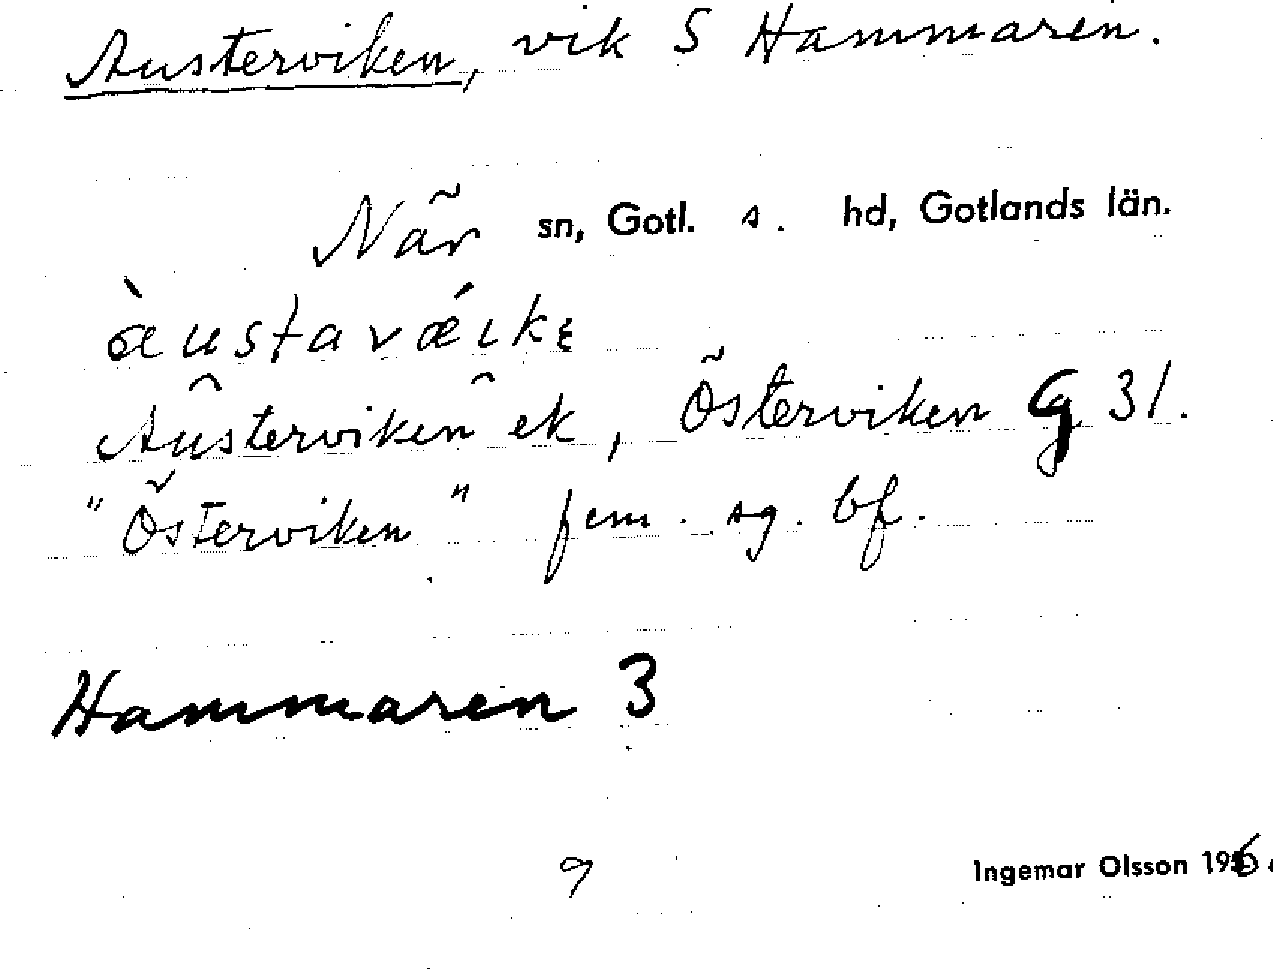 Austerviken, vik S Hammaren.
När sn, Gotl. s. hd, Gotlands län.
àustavǽıkɛ
Aûsterviken̂ ek, Österviken G 31.
"Österviken" fem. sg. bf.
Hammaren 3
9
Ingemar Olsson